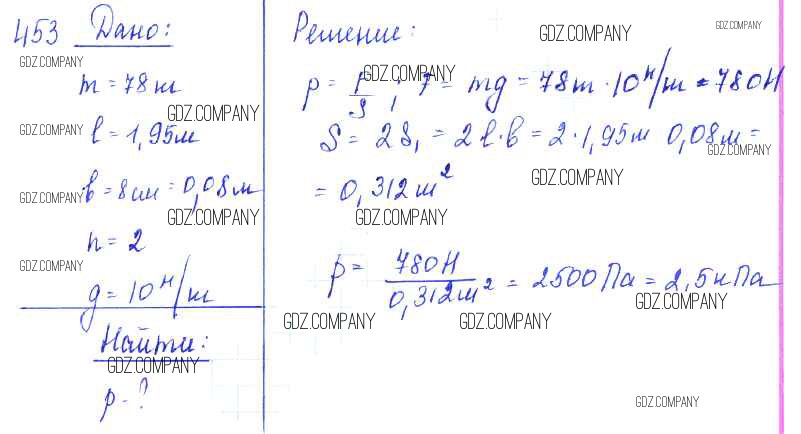 453 Дано:
m = 78 кг
l = 1,95 м
b = 8 см = 0,08 м
n = 2
g = 10 Н/кг
Найти:
p - ?
Решение:
p = F/S ; F = mg = 78 кг · 10 Н/кг = 780 Н
S = 2S₁ = 2l·b = 2·1,95 м 0,08 м =
= 0,312 м²
p = 780 Н / 0,312 м² = 2500 Па = 2,5 кПа
GDZ.COMPANY
GDZ.COMPANY
GDZ.COMPANY
GDZ.COMPANY
GDZ.COMPANY
GDZ.COMPANY
GDZ.COMPANY
GDZ.COMPANY
GDZ.COMPANY
GDZ.COMPANY
GDZ.COMPANY
GDZ.COMPANY
GDZ.COMPANY
GDZ.COMPANY
GDZ.COMPANY
GDZ.COMPANY
GDZ.COMPANY
GDZ.COMPANY